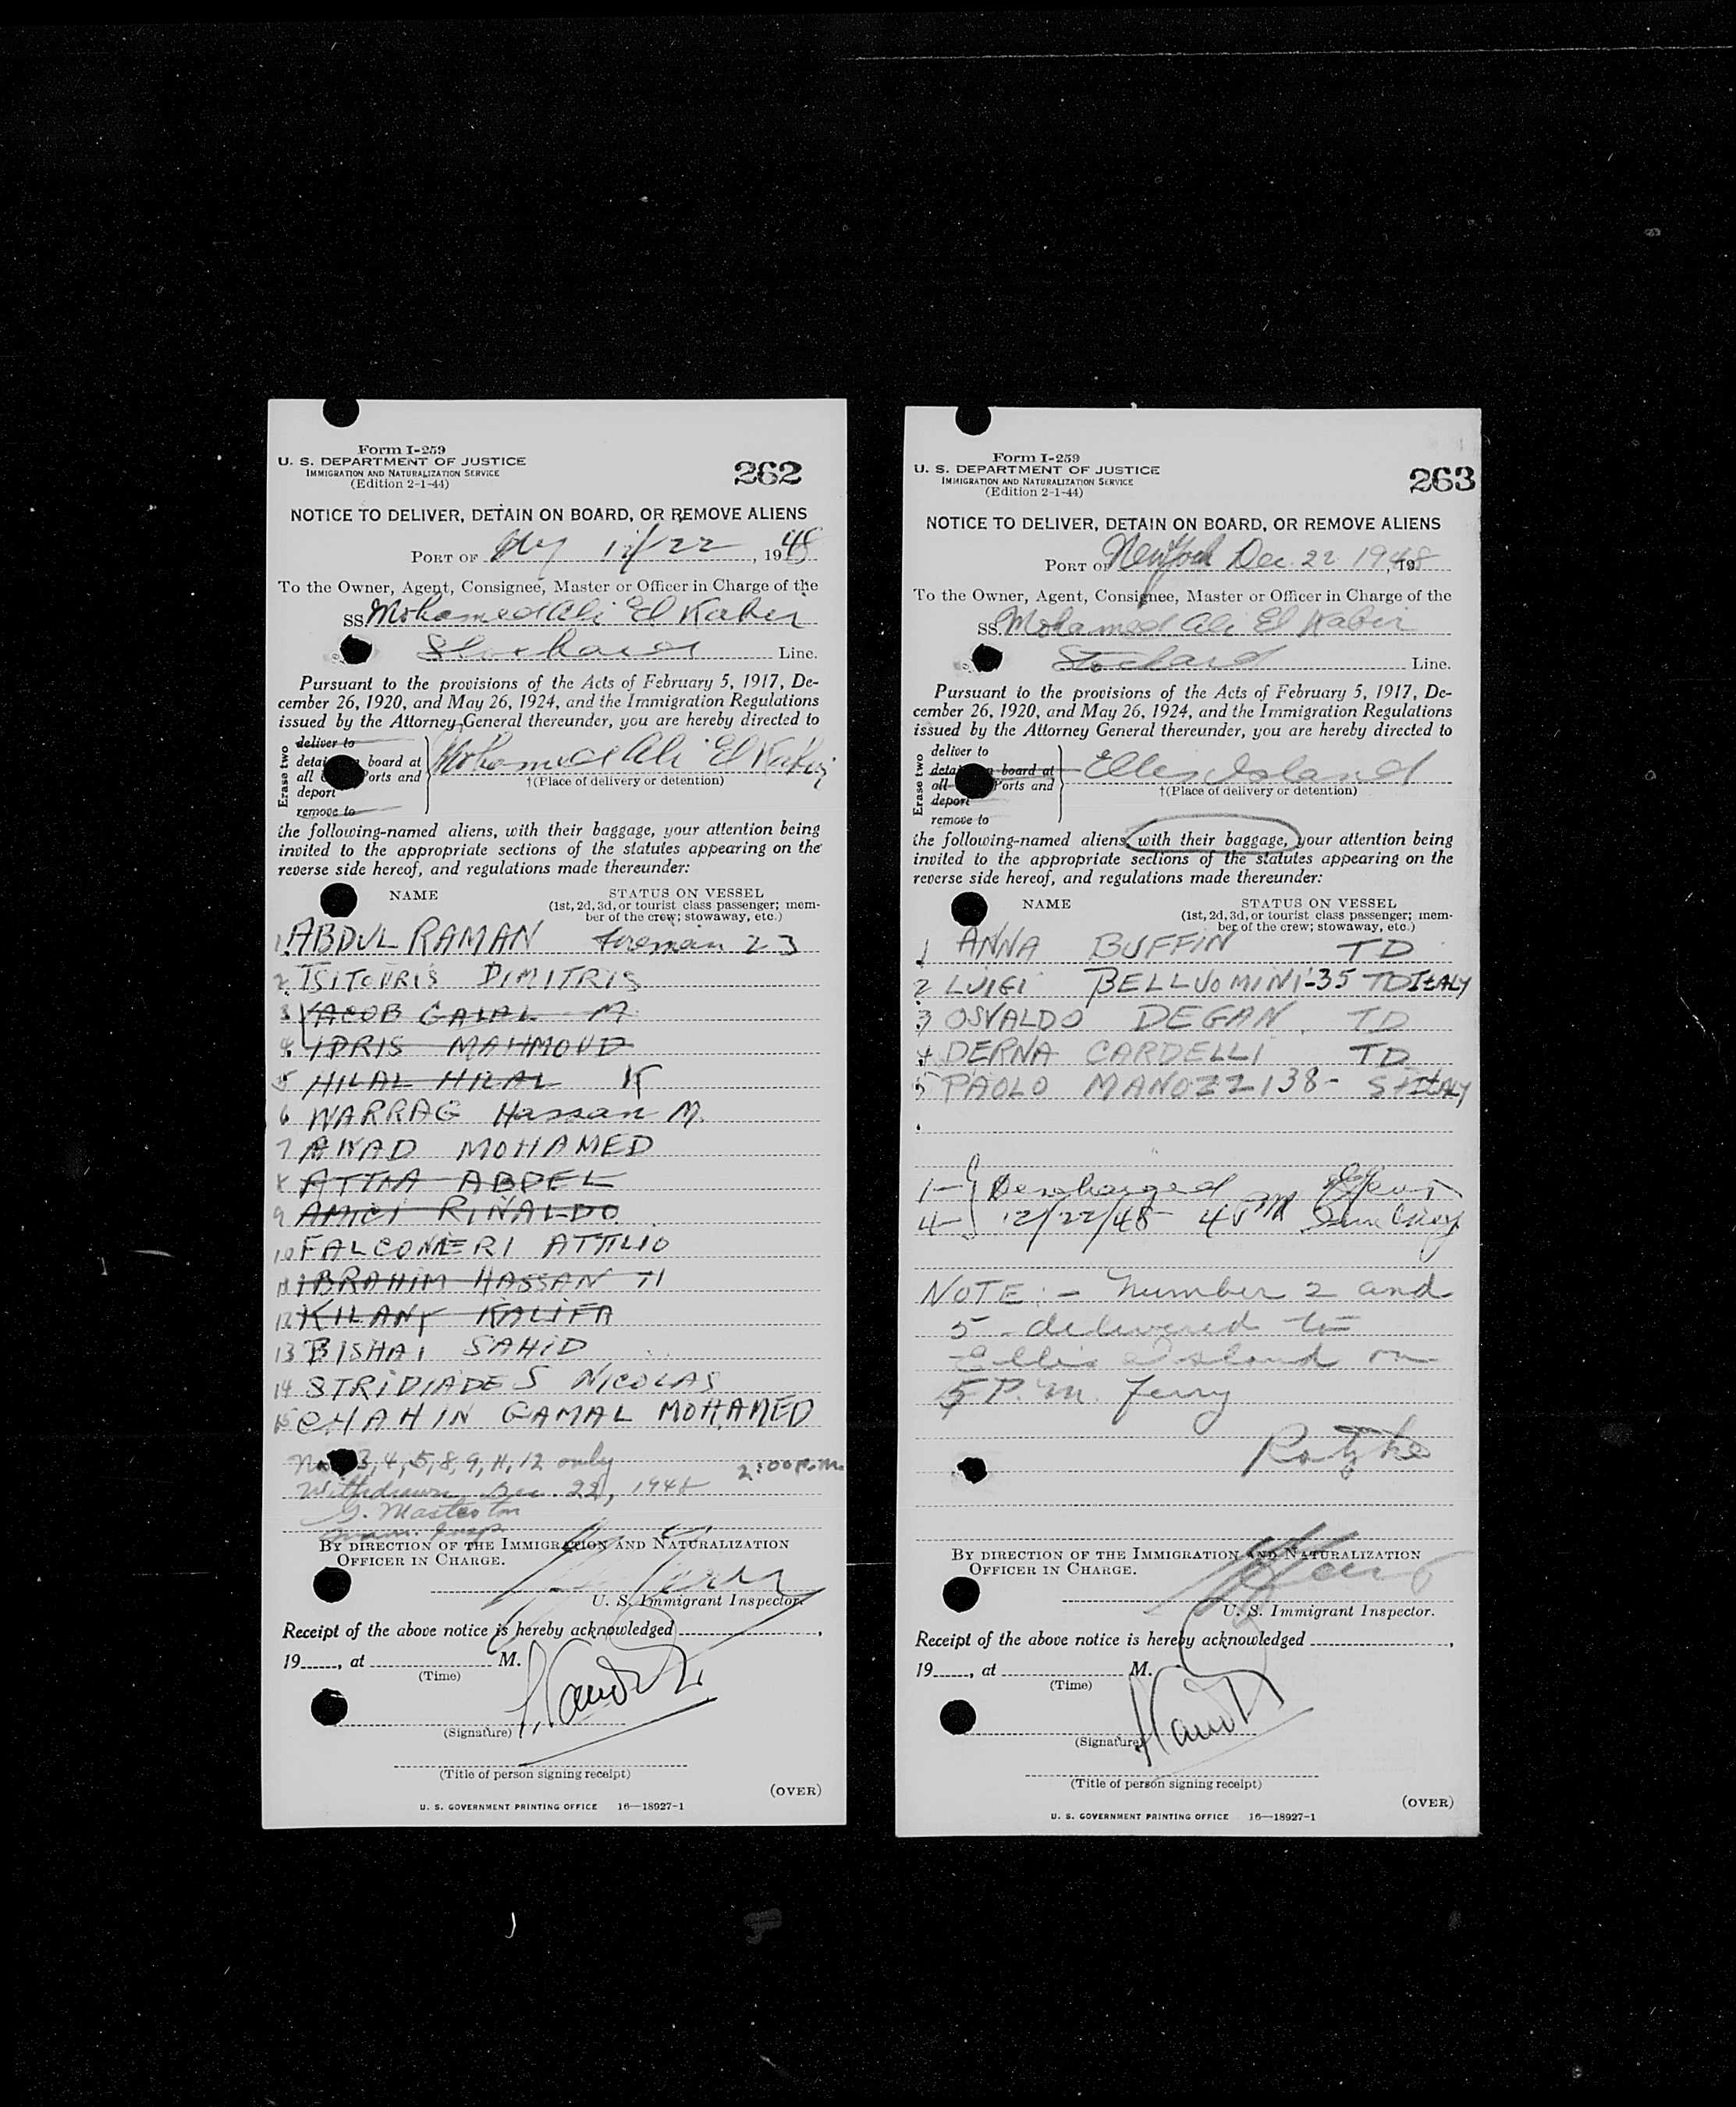 Form I-259
U. S. DEPARTMENT OF JUSTICE
IMMIGRATION AND NATURALIZATION SERVICE
(Edition 2-1-44)
262
NOTICE TO DELIVER, DETAIN ON BOARD, OR REMOVE ALIENS
PORT OF NY 12/22, 1948
To the Owner, Agent, Consignee, Master or Officer in Charge of the
SS Mohamed Ali El Kabir
Line.
Pursuant to the provisions of the Acts of February 5, 1917, De-
cember 26, 1920, and May 26, 1924, and the Immigration Regulations
issued by the Attorney General thereunder, you are hereby directed to
Erase two
deliver to
board at
all Ports and
deport
remove to
Mohamed Ali El Kabir
†(Place of delivery or detention)
the following-named aliens, with their baggage, your attention being
invited to the appropriate sections of the statutes appearing on the
reverse side hereof, and regulations made thereunder:
NAME STATUS ON VESSEL
(1st, 2d, 3d, or tourist class passenger; mem-
ber of the crew; stowaway, etc.)
1 ABDUL RAMAN fireman 23
2 TSITOURIS DIMITRIS
3 YACOB GALAL M
4 IDRIS MAHMOUD
5 HILAL HILAL K
6 WARRAG Hassan M.
7 AWAD MOHAMED
8 ATTIA ABDEL
9 AMICI RINALDO
10 FALCONIERI ATTILIO
11 IBRAHIM HASSAN H
12 KILANY KALIFA
13 BISHAI SAHID
14 STRIDIADES NICOLAS
15 CHAHIN GAMAL MOHAMED
3, 4, 5, 8, 9, 11, 12 only
Withdrawn Dec. 22, 1948 2:00 P.M.
G. Masterton
Imm. Insp
BY DIRECTION OF THE IMMIGRATION AND NATURALIZATION
OFFICER IN CHARGE.
U. S. Immigrant Inspector.
Receipt of the above notice is hereby acknowledged ,
19 , at M.
(Time)
(Signature)
(Title of person signing receipt)
(OVER)
U. S. GOVERNMENT PRINTING OFFICE 16—18927-1
Form I-259
U. S. DEPARTMENT OF JUSTICE
IMMIGRATION AND NATURALIZATION SERVICE
(Edition 2-1-44)
263
NOTICE TO DELIVER, DETAIN ON BOARD, OR REMOVE ALIENS
PORT OF New York Dec. 22 1948, 19
To the Owner, Agent, Consignee, Master or Officer in Charge of the
SS. Mohamed Ali El Kabir
Stockard Line.
Pursuant to the provisions of the Acts of February 5, 1917, De-
cember 26, 1920, and May 26, 1924, and the Immigration Regulations
issued by the Attorney General thereunder, you are hereby directed to
Erase two
deliver to
board at
all Ports and
deport
remove to
Ellis Island
†(Place of delivery or detention)
the following-named aliens, with their baggage, your attention being
invited to the appropriate sections of the statutes appearing on the
reverse side hereof, and regulations made thereunder:
NAME STATUS ON VESSEL
(1st, 2d, 3d, or tourist class passenger; mem-
ber of the crew; stowaway, etc.)
1 ANNA BUFFIN TD
2 LUIGI BELLUOMINI-35 TD ITALY
3 OSVALDO DEGAN. TD
4 DERNA CARDELLI TD
5 PAOLO MANOZZI 38- S ITALY
1- Discharged
4- 12/22/48 4 PM
NOTE:- Number 2 and
5 - delivered to
Ellis Island on
5 P.M. Ferry
BY DIRECTION OF THE IMMIGRATION AND NATURALIZATION
OFFICER IN CHARGE.
U. S. Immigrant Inspector.
Receipt of the above notice is hereby acknowledged ,
19 , at M.
(Time)
(Signature)
(Title of person signing receipt)
(OVER)
U. S. GOVERNMENT PRINTING OFFICE 16—18927-1